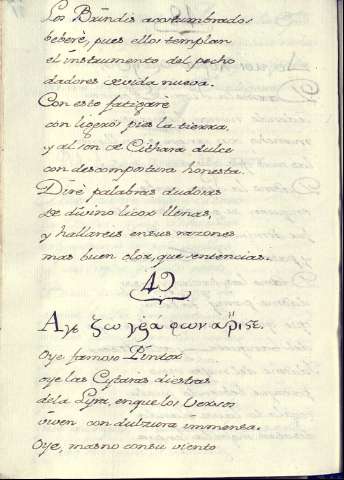 Los Brindis acostumbrados
beberè, pues ellos templan
el instrumento del pecho
dadores de vida nueva.
Con esto fatigarè
con ligeros pies la tierra,
y al son de Cithara dulce
con descompostura honesta.
Dirè palabras dudosas
de divino licor llenas,
y hallareis en sus razones
mas buen olor, que sentencias.
42
Αγε ζωγράφων ἄριςε.
Oye famoso Pintor
oye las Cytaras diestras
de la Lyra, en que los Versos
viven con dulzura immensa.
Oye, mas no con su viento